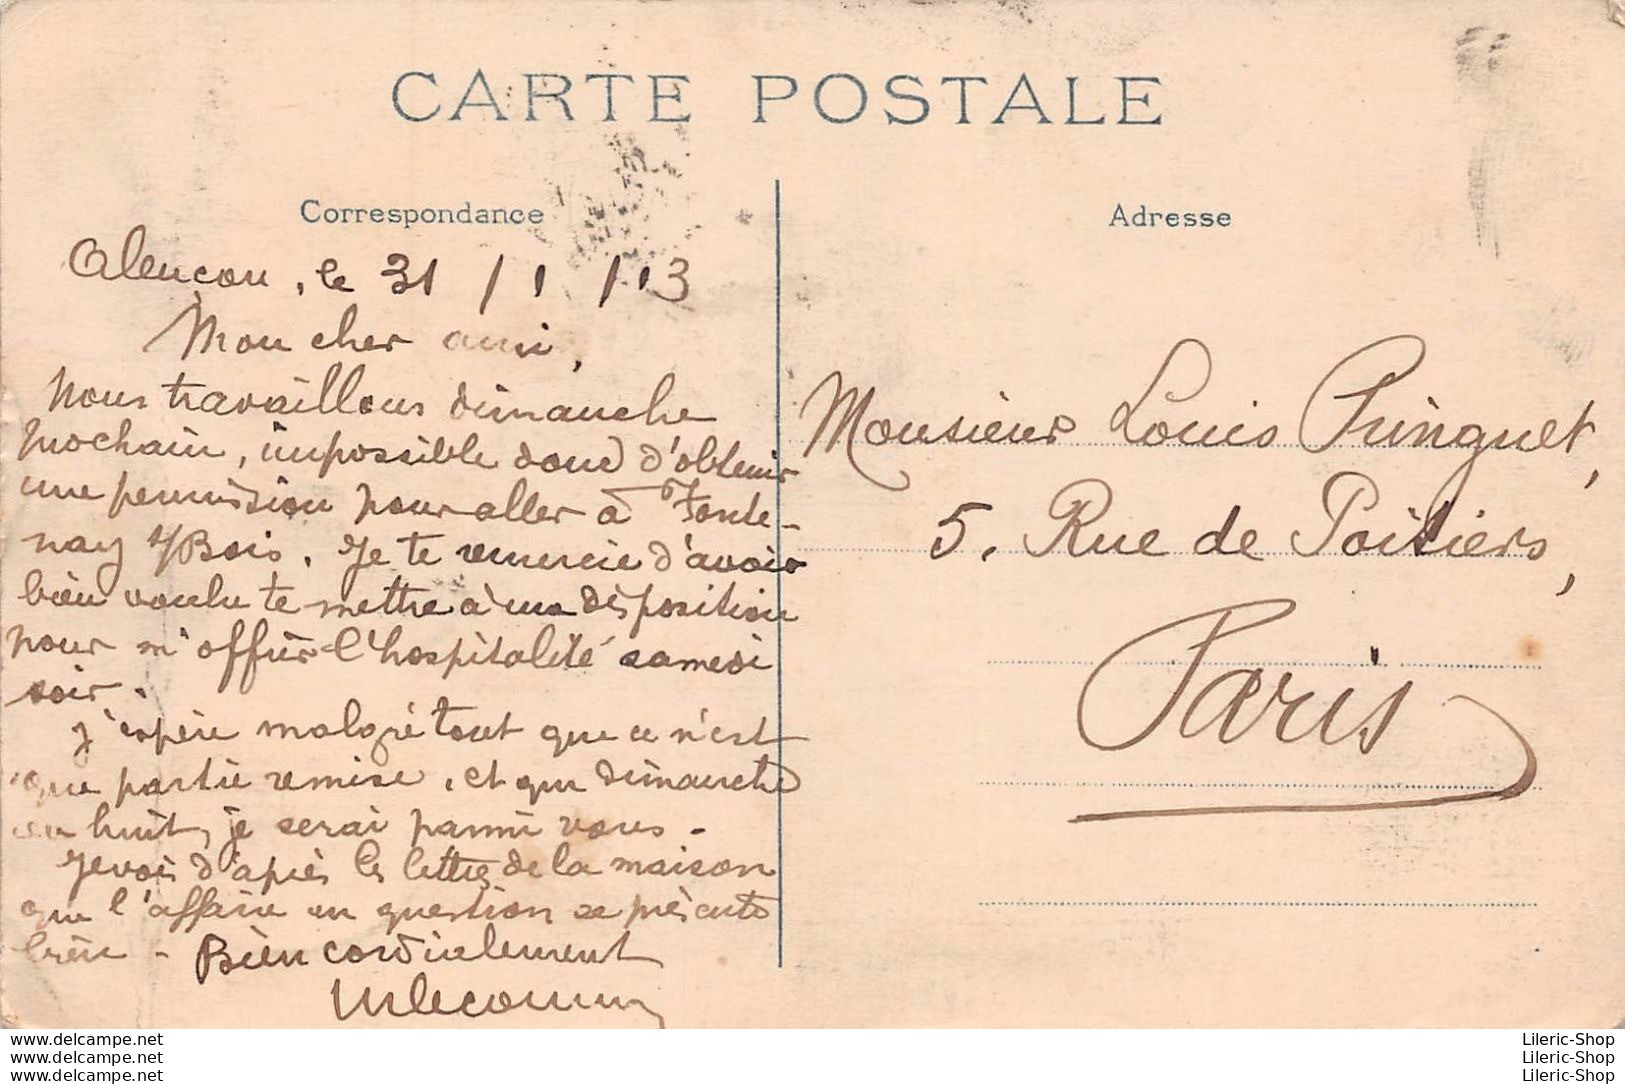 CARTE POSTALE
Correspondance
Alençon, le 31 / 1 / 13
Mon cher ami,
Nous travaillons dimanche
prochain, impossible donc d'obtenir
une permission pour aller à Fonte-
nay s/Bois. Je te remercie d'avoir
bien voulu te mettre à ma disposition
pour m'offrir l'hospitalité samedi
soir.
J'espère malgré tout que ce n'est
que partie remise, et que dimanche
en huit, je serai parmi vous.
Je vois d'après les lettres de la maison
que l'affaire en question se présente
bien - Bien cordialement
Adresse
Monsieur Louis Pringuet,
5. Rue de Poitiers,
Paris
www.delcampe.net
www.delcampe.net
www.delcampe.net
Lileric-Shop
Lileric-Shop
Lileric-Shop